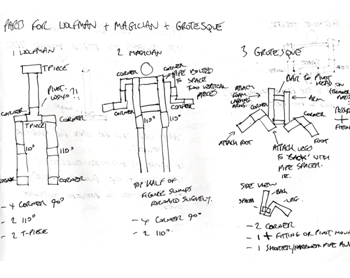 PARTS FOR WOLFMAN + MAGICIAN + GROTESQUE
1 WOLFMAN
2 MAGICIAN
3 GROTESQUE
T PIECE
PIVOT
CORNER
T PIECE
CORNER
110°
110°
CORNER
CORNER
- 4 CORNER 90°
- 2 110°
- 2 T-PIECE
CORNER
CORNER
PIPE
TO
SPACE
TWO VERTICAL
PIPES
CORNER
CORNER
110°
110°
TOP HALF OF
FIGURE SLUMPS
FORWARD SLIGHTLY.
- 4 CORNER 90°
- 2 110°
BAR TO PIVOT
HEAD ON
ARM
CORNER
CORNER
FOOT
ATTACH FOOT
ATTACH LEGS
TO 'BACK' WITH
PIPE SPACER.
SIDE VIEW
BAR
SPACER
LEG.
- 2 CORNER
- 1 FITTING OR PIVOT
- 1 SHORTER